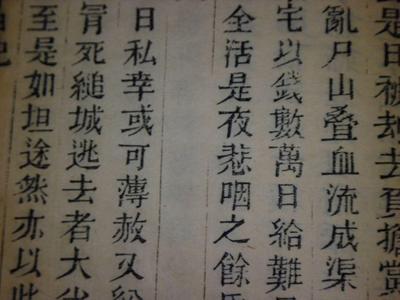 是日被刼去負擔黨
亂尸山疊血流成渠
宅以錢數萬日給難
全活是夜悲咽之餘
日私幸或可薄赦又紛
冐死縋城逃去者大
至是如坦途然亦以此